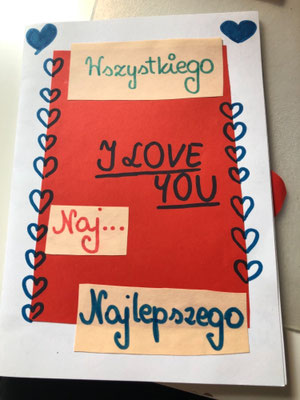 Wszystkiego
I LOVE
YOU
Naj...
Najlepszego